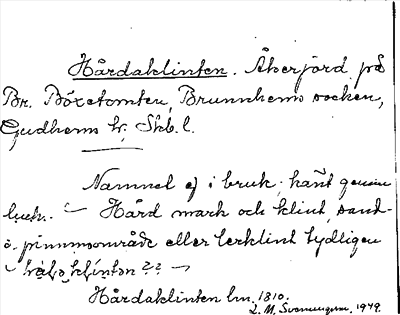 Hårdaklinten. Åkerjord på
Br. Böxetomten, Brunnhems socken,
Gudhems hr, Skb. l.
Namnet ej i bruk, känt genom
luck. — Hård mark och klint, sand-
o. pinnmoområde eller lerklint tydligen
Hårdaklinten lm. 1810.
L. M. Svennungson. 1949.